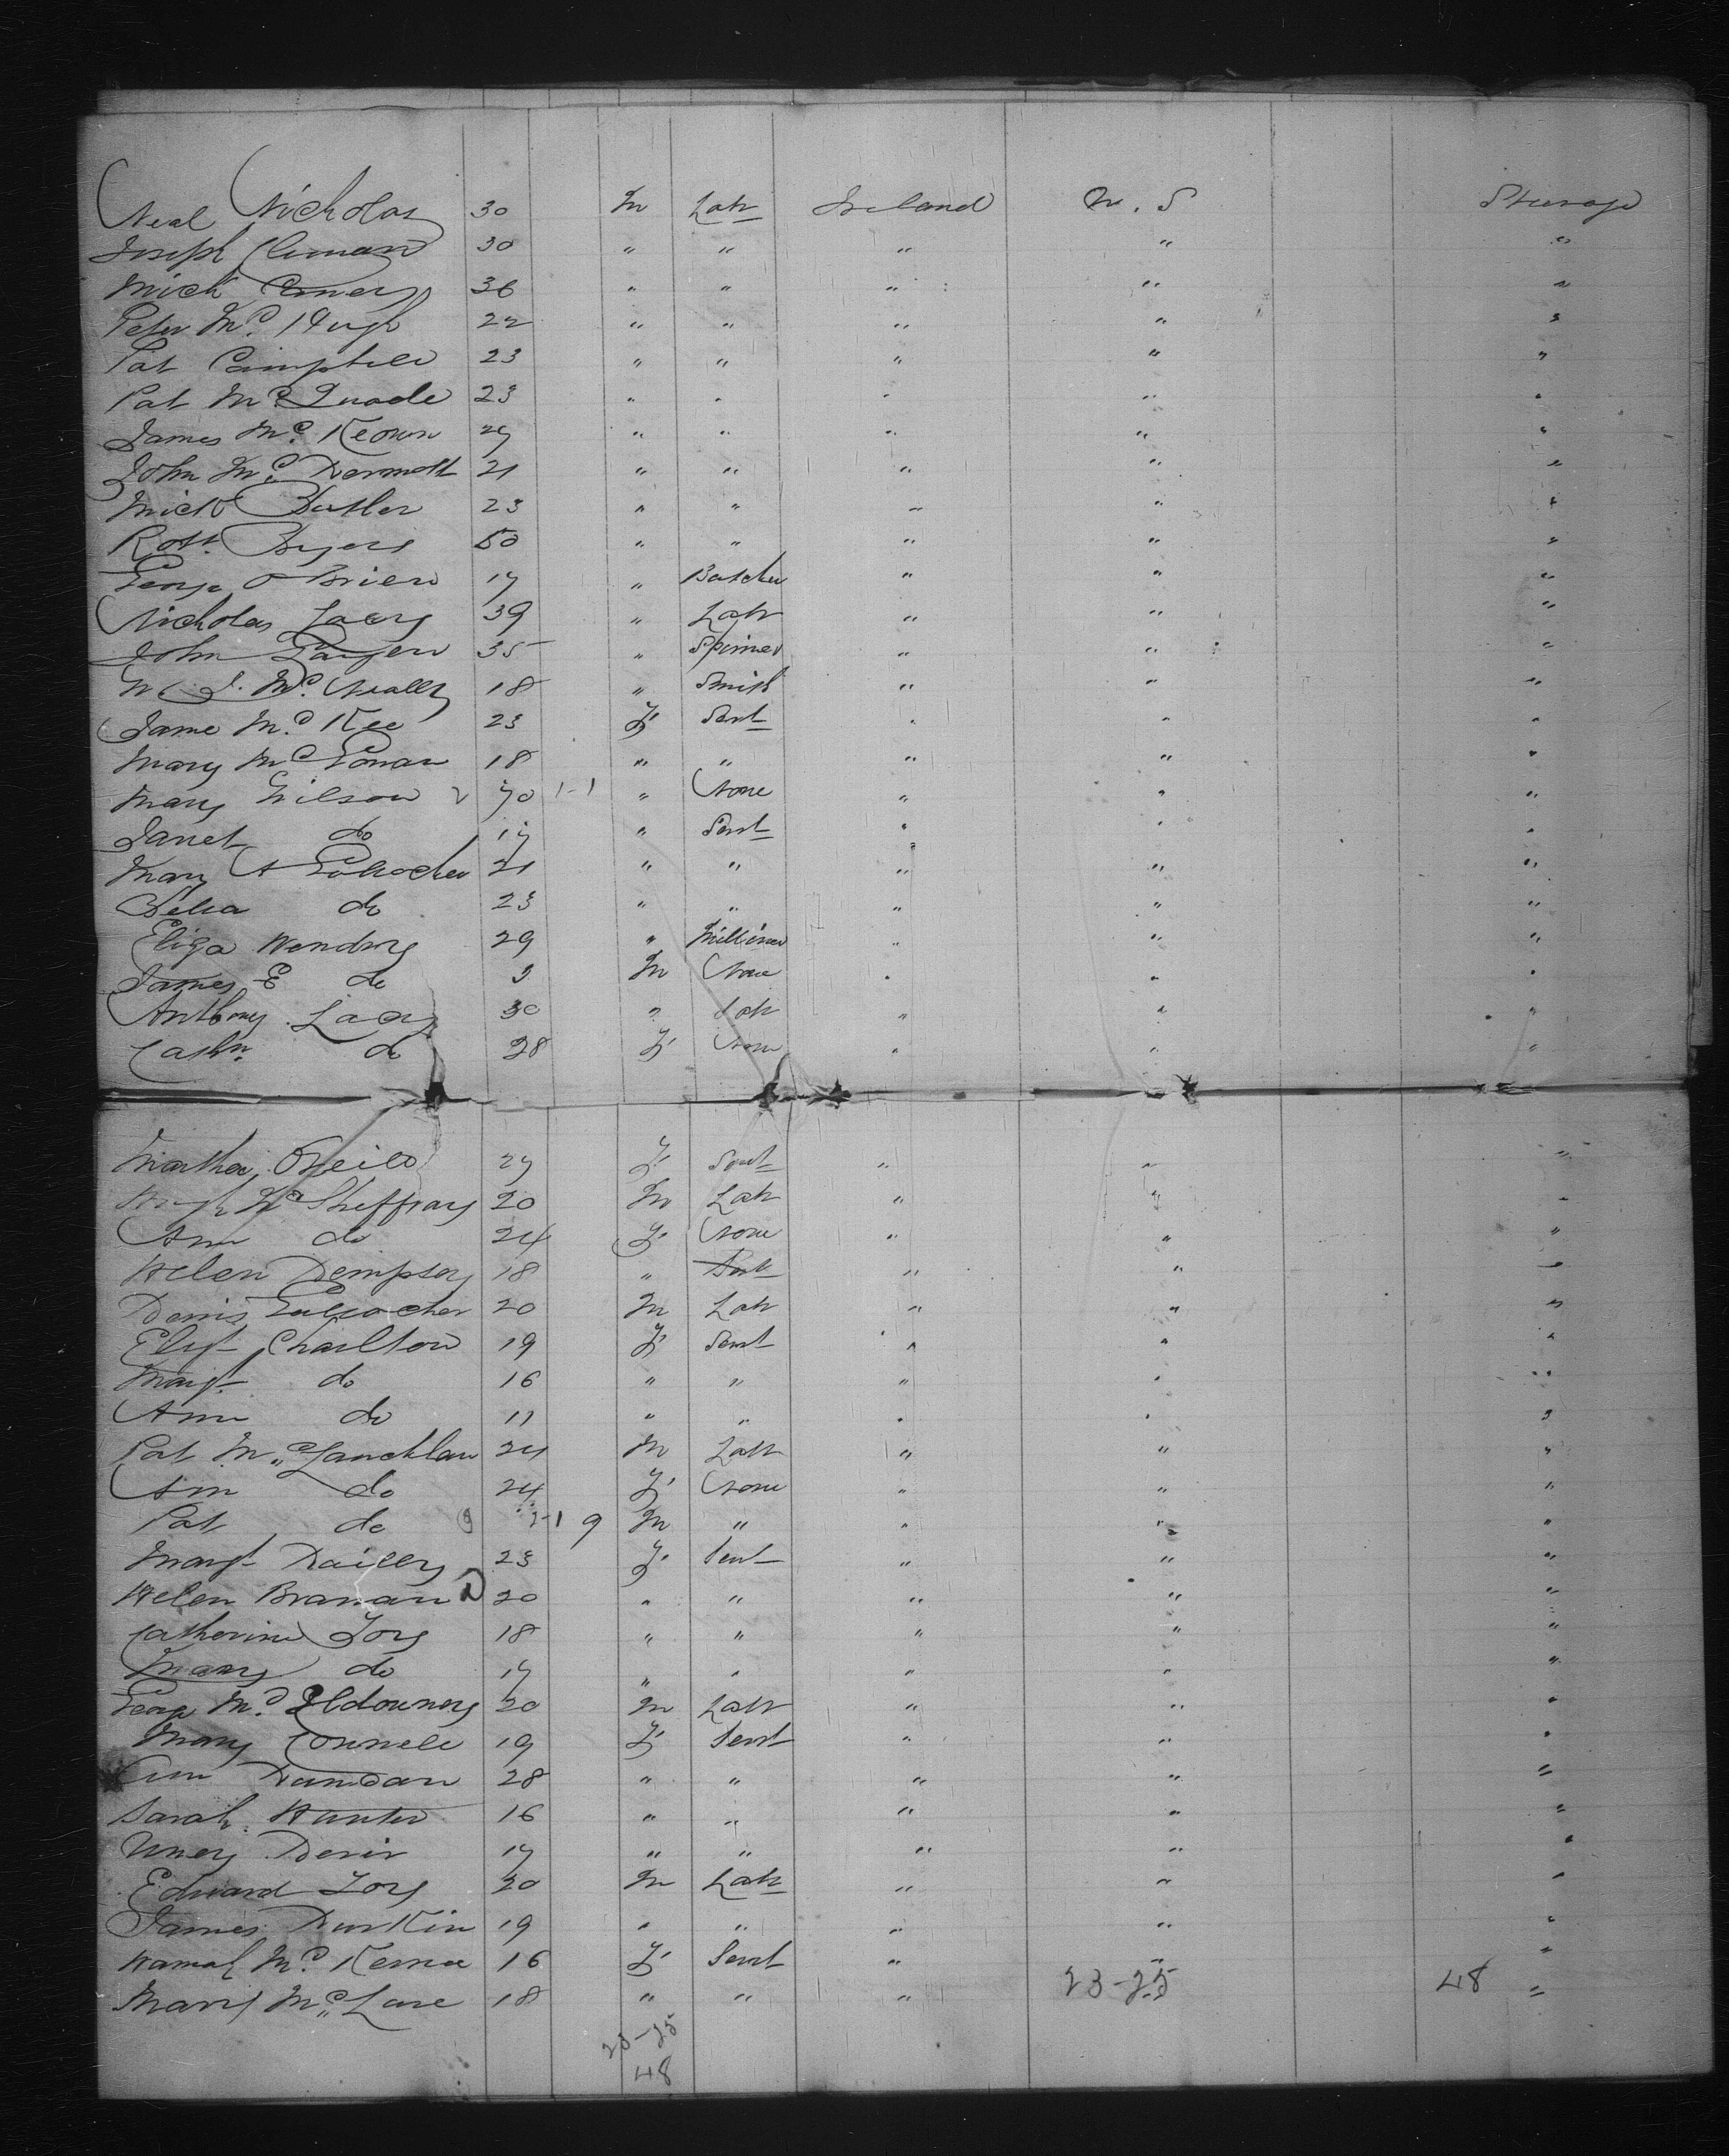 Neal Nicholas 30 M Labr Ireland U.S Steerage
Joseph 30 " " " " "
Mick 36 " " " " "
Peter Mc Hugh 22 " " " " "
Pat Campbell 23 " " " " "
Pat Mc Quade 23 " " " " "
James Mc Keown 27 " " " " "
John Mc Dermott 21 " " " " "
Mick Butler 23 " " " " "
Robt. Byers 50 " " " " "
George O Brien 17 " Butcher " " "
Nicholas Lacey 39 " Labr " " "
John 35 " Spinner " " "
W J. Mc Nally 18 " Smith " " "
Jane Mc Kee 23 F Servt " " "
Mary Mc Gowan 18 " " " " "
Mary Wilson 70 1-1 " None " " "
Janet do 17 " Servt " " "
Mary A Gallocher 21 " " " " "
Bella do 23 " " " " "
Eliza 29 " Milliner " " "
James E do 3 M None " " "
Anthony Lacy 30 " Labr " " "
Cathn. do 28 F None " " "
Martha O'Neill 27 F Servt " " "
Hugh Mc Sheffray 20 M Labr " " "
Ann do 24 F None " " "
Helen Dempsey 18 " Servt " " "
Denis Gallocher 20 M Labr " " "
Elizt Charlton 19 F Servt " " "
Margt. do 16 " " " " "
Ann do 11 " " " " "
Pat Mc Lauchlan 24 M Labr " " "
Ann do 24 F None " " "
Pat do 1-1 9 M " " " "
Margt Dailly 23 F Servt " " "
Helen Brannan 20 " " " " "
Catherine Foy 18 " " " " "
Mary do 17 " " " " "
George Mc Ildowney 20 M Labr " " "
Mary Connell 19 F Servt " " "
Ann 28 " " " " "
Sarah Hunter 16 " " " " "
Devir 17 " " " " "
Edward Foy 20 M Labr " " "
James Durkin 19 " " " " "
Hannah Mc 16 F Servt " " "
Mary Mc 18 " " " 23-25 48 "
23-25
48